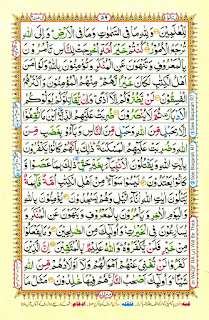 لِّلْعٰلَمِيْنَ وَلِلّٰهِ مَا فِي السَّمٰوٰتِ وَمَا فِي الْاَرْضِ وَاِلَى اللّٰهِ
تُرْجَعُ الْاُمُوْرُ كُنْتُمْ خَيْرَ اُمَّةٍ اُخْرِجَتْ لِلنَّاسِ تَاْمُرُوْنَ
بِالْمَعْرُوْفِ وَتَنْهَوْنَ عَنِ الْمُنْكَرِ وَتُؤْمِنُوْنَ بِاللّٰهِ وَلَوْ اٰمَنَ
اَهْلُ الْكِتٰبِ لَكَانَ خَيْرًا لَّهُمْ مِنْهُمُ الْمُؤْمِنُوْنَ وَاَكْثَرُهُمُ
الْفٰسِقُوْنَ لَنْ يَّضُرُّوْكُمْ اِلَّا اَذًى وَاِنْ يُّقَاتِلُوْكُمْ يُوَلُّوْكُمُ
الْاَدْبَارَ ثُمَّ لَا يُنْصَرُوْنَ ضُرِبَتْ عَلَيْهِمُ الذِّلَّةُ اَيْنَ مَا ثُقِفُوْا
اِلَّا بِحَبْلٍ مِّنَ اللّٰهِ وَحَبْلٍ مِّنَ النَّاسِ وَبَآءُوْ بِغَضَبٍ مِّنَ
اللّٰهِ وَضُرِبَتْ عَلَيْهِمُ الْمَسْكَنَةُ ذٰلِكَ بِاَنَّهُمْ كَانُوْا يَكْفُرُوْنَ
بِاٰيٰتِ اللّٰهِ وَيَقْتُلُوْنَ الْاَنْۢبِيَآءَ بِغَيْرِ حَقٍّ ذٰلِكَ بِمَا عَصَوْا وَّ
كَانُوْا يَعْتَدُوْنَ لَيْسُوْا سَوَآءً مِنْ اَهْلِ الْكِتٰبِ اُمَّةٌ قَآئِمَةٌ
يَّتْلُوْنَ اٰيٰتِ اللّٰهِ اٰنَآءَ الَّيْلِ وَهُمْ يَسْجُدُوْنَ يُؤْمِنُوْنَ بِاللّٰهِ
وَالْيَوْمِ الْاٰخِرِ وَيَاْمُرُوْنَ بِالْمَعْرُوْفِ وَيَنْهَوْنَ عَنِ الْمُنْكَرِ وَ
يُسَارِعُوْنَ فِي الْخَيْرٰتِ وَاُولٰٓئِكَ مِنَ الصّٰلِحِيْنَ وَمَا يَفْعَلُوْا
مِنْ خَيْرٍ فَلَنْ يُّكْفَرُوْهُ وَاللّٰهُ عَلِيْمٌۢ بِالْمُتَّقِيْنَ اِنَّ الَّذِيْنَ
كَفَرُوْا لَنْ تُغْنِيَ عَنْهُمْ اَمْوَالُهُمْ وَلَآ اَوْلَادُهُمْ مِّنَ اللّٰهِ
شَيْئًا وَاُولٰٓئِكَ اَصْحٰبُ النَّارِ هُمْ فِيْهَا خٰلِدُوْنَ مَثَلُ مَا